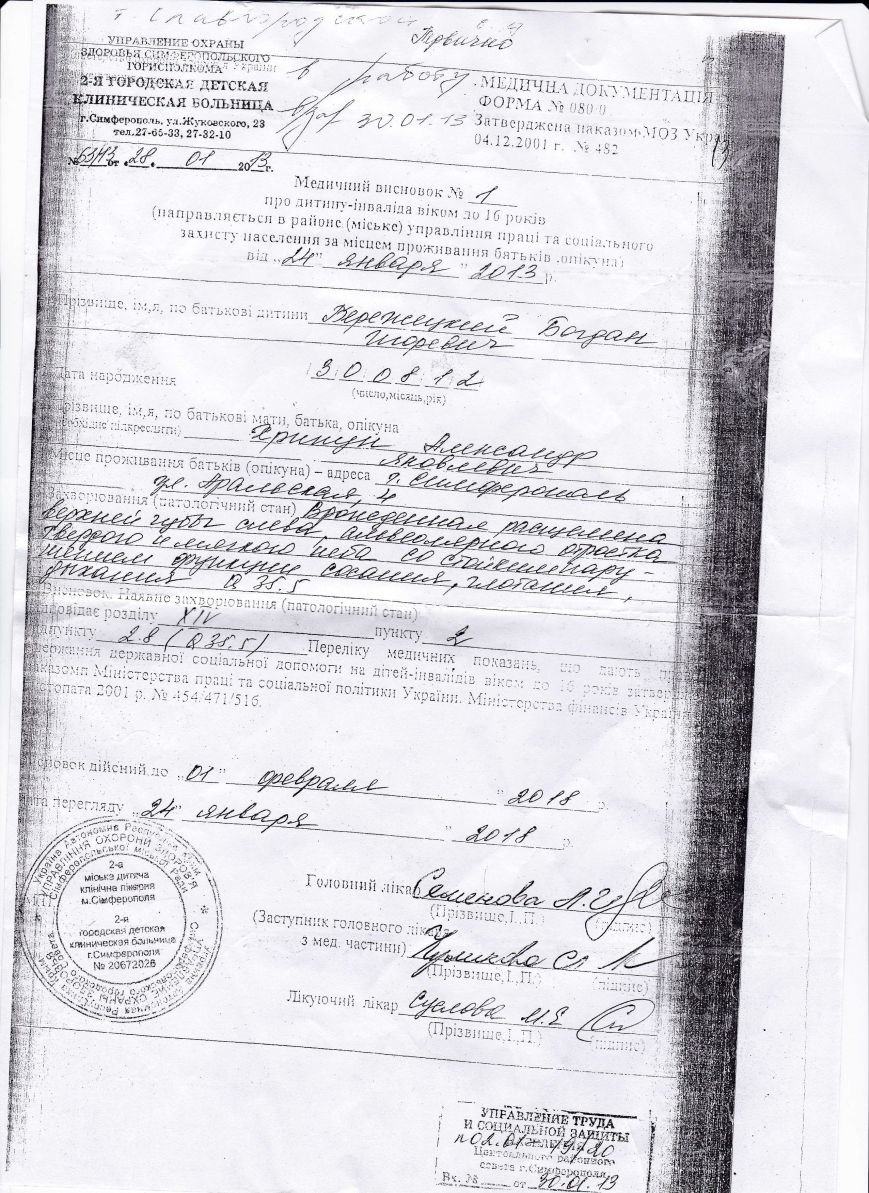 г. Славгородской
Первично
в работу
30.01.13
УПРАВЛЕНИЕ ОХРАНЫ
ЗДОРОВЬЯ СИМФЕРОПОЛЬСКОГО
ГОРИСПОЛКОМА
2-Я ГОРОДСКАЯ ДЕТСКАЯ
КЛИНИЧЕСКАЯ БОЛЬНИЦА
г.Симферополь, ул.Жуковского, 23
тел.27-65-33, 27-32-10
от «28» 01 2013г.
МЕДИЧНА ДОКУМЕНТАЦІЯ
ФОРМА № 080-0
Затверджена наказом МОЗ Укра
04.12.2001 г. № 482
Медичний висновок № 1
про дитину-інваліда віком до 16 років
(направляється в районе (міське) управління праці та соціального
захисту населення за місцем проживання батьків .опікуна)
від „24" января " 2013 р.
Прізвище, ім,я, по батькові дитини Вережицкий Богдан
Игоревич
Дата народження 3 0 0 8 1 2
(число,місяць,рік)
Прізвище, ім,я, по батькові мати, батька, опікуна
(необхідне підкреслити) Александр
Яковлевич
Місце проживання батьків (опікуна) – адреса г. Симферополь
ул. Аральская, 4
Захворювання (патологічний стан) Врожденная расщелина
верхней губы слева, альвеолярного отростка
твердого и мягкого неба со стойким нару-
шением функции сосания, глотания,
дыхания Q 35.5
Висновок. Наявне захворювання (патологічний стан)
відповідає розділу XIV пункту 2
підпункту 2.8 (Q 35.5) Переліку медичних показань, що дають пра
державної соціальної допомоги на дітей-інвалідів віком до 16 років затвер
наказом Міністерства праці та соціальної політики України. Міністерства фінансів Украї
листопата 2001 р. № 454/471/516.
Висновок дійсний до „01" февраля " 2018 р.
Дата перегляду „24" января " 2018 р.
Україна Автономна Республіка
УПРАВЛІННЯ ОХОРОНИ ЗДОРОВ'Я
Сімферопольської міської Ради
2-а
міська дитяча
клінічна лікарня
м.Сімферополя
2-я
городская детская
клиническая больница
г.Симферополя
№ 20672026
Головний лікар Семенова А.Г.
(Прізвище,І.,П.) (підпис)
(Заступник головного лікаря
з мед. частини)
(Прізвище,І.,П.) (підпис)
Лікуючий лікар Суслова М.Е
(Прізвище,І.,П.) (підпис)
УПРАВЛЕНИЕ ТРУДА
И СОЦИАЛЬНОЙ ЗАЩИТЫ
Центрального районного
совета г.Симферополя
Вх. № от 30.01.13